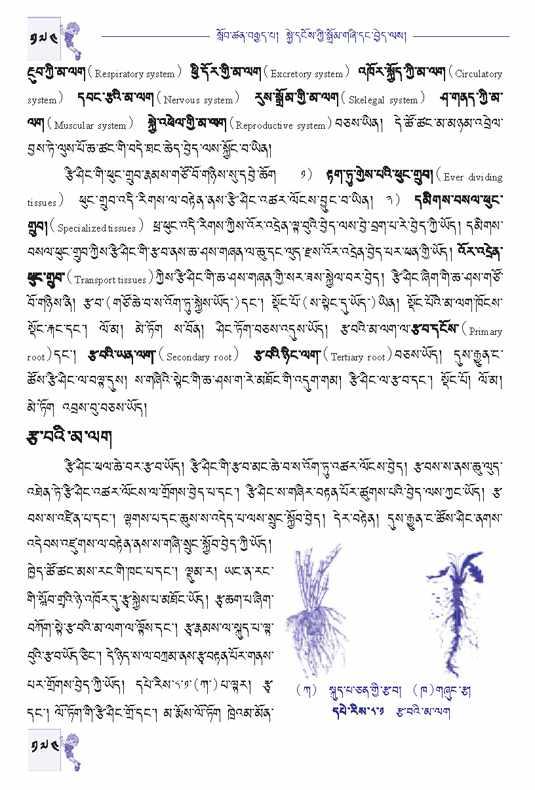 ༡༧༤
སློབ་ཚན་བརྒྱད་པ། སྐྱེ་དངོས་ཀྱི་སྒྲོམ་གཞི་དང་བྱེད་ལས།
རྔུབ་ཀྱི་མ་ལག (Respiratory system) ཕྱི་དོར་གྱི་མ་ལག (Excretory system) འཁོར་སྐྱོད་ཀྱི་མ་ལག (Circulatory
system) དབང་རྩའི་མ་ལག (Nervous system) རུས་སྒྲོམ་གྱི་མ་ལག (Skelegal system) ཤ་གནད་ཀྱི་མ་
ལག (Muscular system) སྐྱེ་འཕེལ་གྱི་མ་ལག (Reproductive system) བཅས་ཡིན། དེ་ཚོ་ཚང་མ་མཉམ་འབྲེལ་
བྱས་ཏེ་ལུས་པོ་ཆ་ཚང་གི་བདེ་ཐང་ཆེད་བྱེད་ལས་སྐྱོང་བ་ཡིན།
རྩི་ཤིང་གི་ཕུང་གྲུབ་རྣམས་གཙོ་བོ་གཉིས་སུ་དབྱེ་ཆོག ༡) རྟག་ཏུ་གྱེས་པའི་ཕུང་གྲུབ། (Ever dividing
tissues) ཕུང་གྲུབ་འདི་རིགས་ལ་བརྟེན་ནས་རྩི་ཤིང་འཚར་ལོངས་བྱུང་བ་ཡིན། ༢) དམིགས་བསལ་ཕུང་
གྲུབ། (Specialized tissues) ཕྲ་ཕུང་འདི་རིགས་ཀྱིས་འོར་འདྲེན་ལྟ་བུའི་བྱེད་ལས་བྱེ་བྲག་པ་རེ་བྱེད་ཀྱི་ཡོད། དམིགས་
བསལ་ཕུང་གྲུབ་ཀྱིས་རྩི་ཤིང་གི་རྩ་བ་ནས་ཆ་ཤས་གཞན་ལ་ཆུ་དང་ལུད་རྫས་འོར་འདྲེན་བྱེད་པར་ཕན་གྱི་ཡོད། འོར་འདྲེན་
ཕུང་གྲུབ་ (Transport tissues) ཀྱིས་རྩི་ཤིང་གི་ཆ་ཤས་གཞན་གྱི་སར་ཟས་སྐྱེལ་བར་བྱེད། རྩི་ཤིང་ཞིག་གི་ཆ་ཤས་གཙོ་
བོ་གཉིས་ནི། རྩ་བ་ (གཙོ་ཆེ་བ་ས་འོག་ཏུ་སྐྱེས་ཡོད་) དང་། སྡོང་པོ་ (ས་སྟེང་དུ་ཡོད་) ཡིན། སྡོང་པོའི་མ་ལག་ཁོངས་
སྡོང་རྐང་དང་། ལོ་མ། མེ་ཏོག ས་བོན། ཤིང་ཏོག་བཅས་འདུས་ཡོད། རྩ་བའི་མ་ལག་ལ་རྩ་བ་དངོས་ (Primary
root) དང་། རྩ་བའི་ཡན་ལག (Secondary root) རྩ་བའི་ཉིང་ལག (Tertiary root) བཅས་ཡོད། དུས་རྒྱུན་ང་
ཚོས་རྩི་ཤིང་ལ་བལྟ་དུས། ས་གཞིའི་སྟེང་གི་ཆ་ཤས་ག་རེ་མཐོང་གི་འདུག་གམ། རྩི་ཤིང་ལ་རྩ་བ་དང་། སྡོང་པོ། ལོ་མ།
མེ་ཏོག འབྲས་བུ་བཅས་ཡོད།
རྩ་བའི་མ་ལག
རྩི་ཤིང་ཕལ་ཆེ་བར་རྩ་བ་ཡོད། རྩི་ཤིང་གི་རྩ་བ་མང་ཆེ་བ་ས་འོག་ཏུ་འཚར་ལོངས་བྱེད། རྩ་བས་ས་ནས་ཆུ་ལུད་
འཐེན་ཏེ་རྩི་ཤིང་འཚར་ལོངས་ལ་གྲོགས་བྱེད་པ་དང་། རྩི་ཤིང་ས་གཞིར་བརྟན་པོར་ཚུགས་པའི་བྱེད་ལས་ཀྱང་ཡོད། རྩ་
བས་ས་འཛིན་པ་དང་། ལྷགས་པ་དང་ཆུས་ས་འདེད་པ་ལས་སྲུང་སྐྱོབ་བྱེད། དེར་བརྟེན། དུས་རྒྱུན་ང་ཚོས་ཤིང་ནགས་
འདེབས་འཛུགས་ལ་བརྟེན་ནས་ས་གཞི་སྲུང་སྐྱོབ་བྱེད་ཀྱི་ཡོད།
ཁྱེད་ཚོ་ཚང་མས་རང་གི་ཁང་པ་དང་། ལྡུམ་ར། ཡང་ན་རང་
གི་སློབ་གྲྭའི་ཉེ་འཁོར་དུ་རྩྭ་སྐྱེས་པ་མཐོང་ཡོད། རྩྭ་ཆག་པ་ཞིག་
བཀོག་སྟེ་རྩ་བའི་མ་ལག་ལ་ལྟོས་དང་། རྩྭ་རྣམས་ལ་སྐུད་པ་ལྟ་
བུའི་རྩ་བ་ཡོད་ཅིང་། དེ་ཉིད་ས་ལ་བཀྲམ་ནས་རྩྭ་བརྟན་པོར་གནས་
པར་གྲོགས་བྱེད་ཀྱི་ཡོད། དཔེ་རིས་༨་༡་ (ཀ་) པ་ལྟར། རྩྭ་
དང་། ལོ་ཏོག་གི་རྩི་ཤིང་གྲོ་དང་། མ་རྨོས་ལོ་ཏོག ཁྲེའམ་མོན་
(ཀ) སྐུད་པ་ཅན་གྱི་རྩ་བ། (ཁ) གཞུང་རྩ།
དཔེ་རིས་༨་༡ རྩ་བའི་མ་ལག
༡༧༤